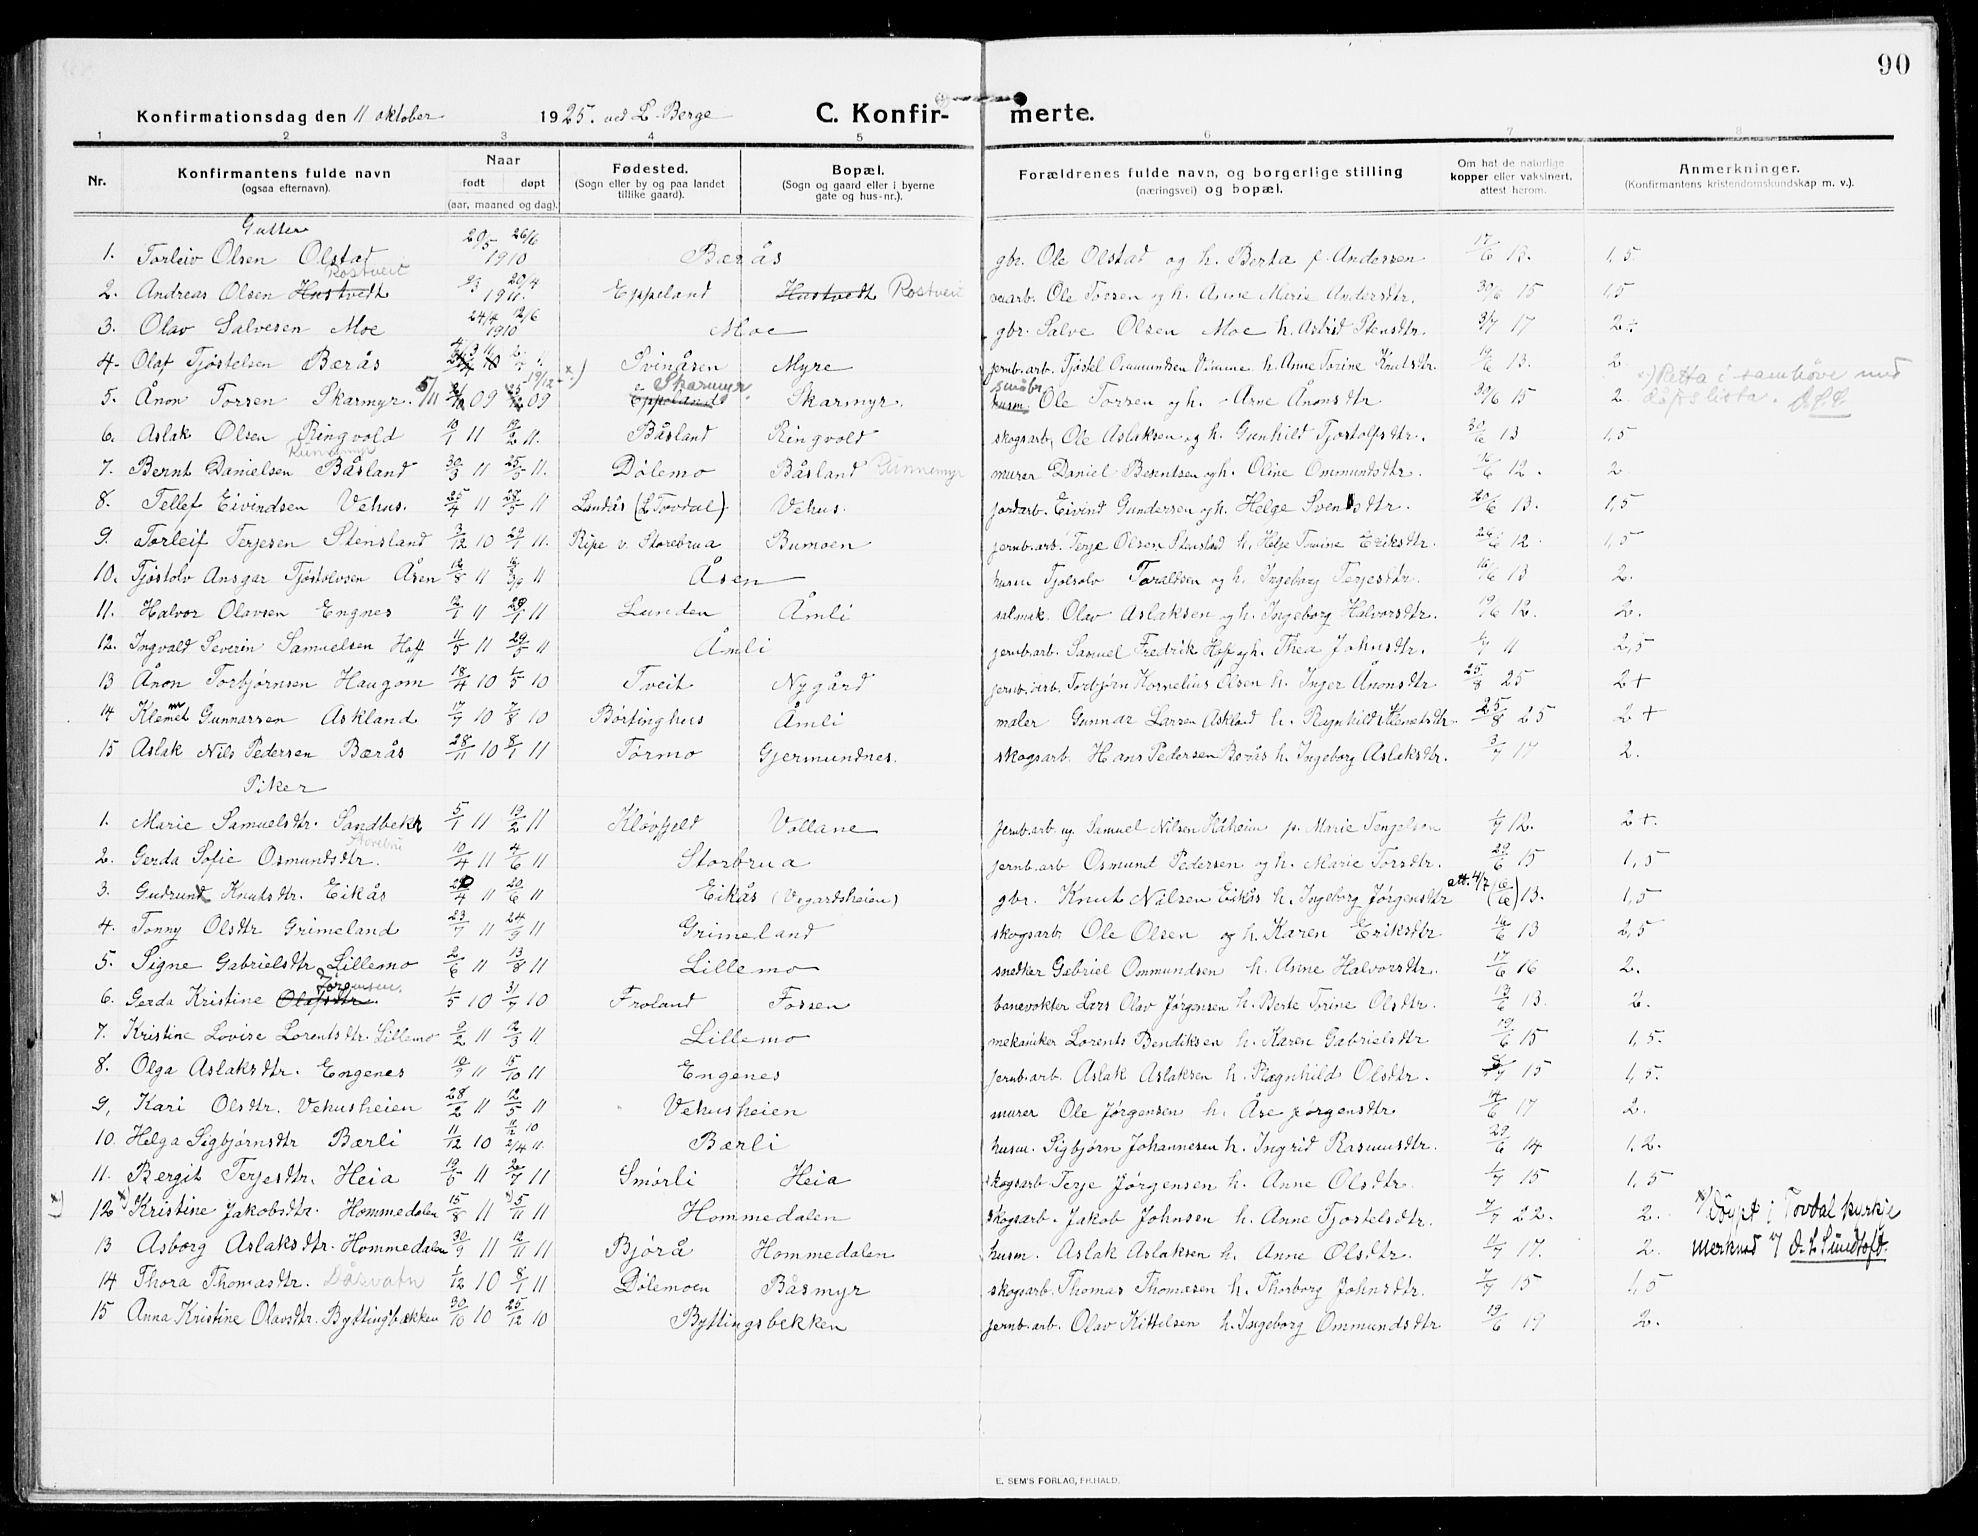 90
Konfirmationsdag den 11 oktober 1925. ved L. Berge C. Konfirmerte.
1 2 3 4 5 6 7 8
Nr. Konfirmantens fulde navn (ogsaa efternavn). Naar født døpt (aar, maaned og dag). Fødested. (Sogn eller by og paa landet tillike gaard). Bopæl. (Sogn og gaard eller i byerne gate og hus-nr.). Forældrenes fulde navn, og borgerlige stilling (næringsvei) og bopæl. Om hat de naturlige kopper eller vaksinert, attest herom. Anmerkninger. (Konfirmantens kristendomskundskap m. v.).
Gutter
1. Torleiv Olsen Olstad 29/5 26/6 1910 Bærås gbr. Ole Olstad og h. Berta f. Anderssen 17/6 12. 1,5
2. Andreas Olsen Hustvedt Rostveit 9/3 20/4 1911. Eppeland Hustvedt Rostveit veiarb. Ole Torsen og h. Anne Marie Andersdtr. 30/6 15 1,5
3. Olav Salvesen Moe 24/4 12/6 1910 Moe gbr. Salve Olsen Moe h. Asbid Stensdtr. 3/7 17 2+
4. Olaf Tjøstelsen Bærås Svinåsen Myre jernb.arb. Tjøstel Ommundsen Vimme h. Anne Torine Knutsdtr. 19/6 13. 2
5. Ånon Torsen Skarmyr. 5/11 09 19/12 09 x) Eppeland Skarmyr. Skarmyr. husm småbr. Ole Torsen og h. Arne Ånonsdtr 30/6 15 2. x) Retta i samhøve med dåpslista.
6. Aslak Olsen Ringvold 10/1 11 12/2 11. Båsland Ringvold skogsarb. Ole Aslaksen og h. Gunhild Tjostolfsdtr. 30/6 13 1,5
7. Bernt Danielsen Båsland Runnemyr 30/3 11 25/5 11. Dølemo Båsland Runnemyr murer Daniel Berentsen og h. Oline Ommundsdtr. 12/6 12. 2
8. Tellef Eivindsen Vehus. 25/4 11 28/5 11 Landås (L Tovdal). Vehus. jordarb. Eivind Gundersen og h. Helge Svensdtr. 20/6 13. 1,5
9. Torleif Terjesen Stensland 3/12 10 29/1 11. Ripe v. Storebrua Bumoen jernb.arb. Terje Olsen Stensland h. Helje Torine Eriksdtr. 26/6 12. 1,5
10. Tjøstolv Ansgar Tjøstolvsen Åsen 12/8 11 11 Åsen husm Tjølsolv Toraldsen og h. Ingeborg Terjesdtr. 16/6 13 2.
11. Halvor Olavsen Engnes 11 11 Lunden Åmli salmak. Olav Aslaksen og h. Ingeborg Halvorsdtr. 19/6 12. 2.
12. Ingvald Severin Samuelsen Hoff 11/5 11 29/5 11 Åmli jernb.arb. Samuel Fredrik Hoff og h. Thea Johnsdtr. 11 2,5
13 Ånon Torbjørnsen Haugom 18/4 10 10 Tveit Nygård jernb.arb. Torbjørn Kornelius Olsen h. Inger Ånonsdtr 25/8 25 2+
14 Klemmet Gunnarsen Askland 17/7 10 7/8 10 Børtinghus Åmli maler Gunnar Larsen Askland h. Ragnhild Klemetsdtr. 25/8 25 2+
15 Aslak Nils Pedersen Bærås 28/11 10 8/1 11 Tørmo Gjermundnes. skogsarb. Hans Pedersen Berås h. Ingeborg Aslaksdtr. 3/7 17 2.
Piker
1. Marie Samuelsdtr. Sandbekk 5/1 11 19/2 11 Kløvfjeld Vollane jernb.arb. ug. Samuel Nilsen Håheim p. Marie Tengelsen 12. 2+.
2. Gerda Sofie Osmundsdtr. Storebru 10/4 11 4/6 11 Storbrua jernb.arb Osmund Pedersen og h. Marie Torsdtr. 29/6 15 1,5
3. Gudrun Knutsdtr. Eikås 20/4 11 20/6 11 Eikås (Vegardsheien) gbr. Knut Nilsen Eikås h. Ingeborg Jørgensdtr att. 4/7 (16/6) 13. 1,5
4. Tonny Olsdtr Grimeland 23/7 11 24/9 11 Grimeland skogsarb. Ole Olsen og h. Karen Eriksdtr. 16/6 13 2,5
5. Signe Gabrielsdtr Lillemo 2/6 11 13/8 11 Lillemo snedker Gabriel Ommundsen h. Anne Halvorsdtr. 17/6 16 2.
6. Gerda Kristine Olafsdtr. Jørgensen 1/5 10 31/7 10 Froland Fossen banevokter Lars Olav Jørgensen h. Berte Torine Olsdtr. 13/6 13. 2.
7. Kristine Lovise Lorentsdtr. Lillemo 9/2 11 12/3 11 Lillemo mekaniker Lorents Bendiksen h. Karen Gabrielsdtr 19/6 15 1,5.
8. Olga Aslaksdtr. Engenes 10/9 11 15/10 11 Engenes jernb.arb. Aslak Aslaksen h. Ragnhild Olsdtr. 15 1,5.
9, Kari Olsdtr. Vehusheien 28/2 11 12/5 11 Vehusheien murer Ole Jørgensen h. Åse Jørgensdtr 14/6 17 2.
10. Helga Sigbjørnsdtr Bærli 11/12 10 11/12 10 2/4 11. Bærli husm. Sigbjørn Johannesen h. Ingrid Rasmusdtr. 29/6 14 1,2.
11. Bergit Terjesdtr. Heia 19/5 11 2/7 11 Smørli Heia skogsarb Terje Jørgensen h. Anne Olsdtr. 1/7 15 1,5
x) 12 x) Kristine Jakobsdtr. Hommedalen 15/8 11 x) 5/11 11 Hommedalen skogsarb. Jakob Johnsen h. Anne Tjostelsdtr. 7/7 22. 2. x) Døypt i Tovdal kyrkje
13 Asborg Aslaksdtr. Hommedalen 30/9 11 12/11 11 Bjørå Hommedalen husm. Aslak Aslaksen h. Anne Olsdtr. 17. 2. merknad v/ O. L. Sundtoft.
14 Thora Thomasdtr. Båsvatn 1/12 10 8/1 11 Dølemoen Båsmyr skogsarb. Thomas Thomasen h. Thorborg Johnsdtr. 7/7 15 1,5
15 Anna Kristine Olavsdtr. Byttingsbekken 30/10 10 25/12 10 Byttingsbekken jernb.arb. Olav Kittelsen h. Ingeborg Ommundsdtr 19/6 19 2.
E. SEM'S FORLAG, FR.HALD.